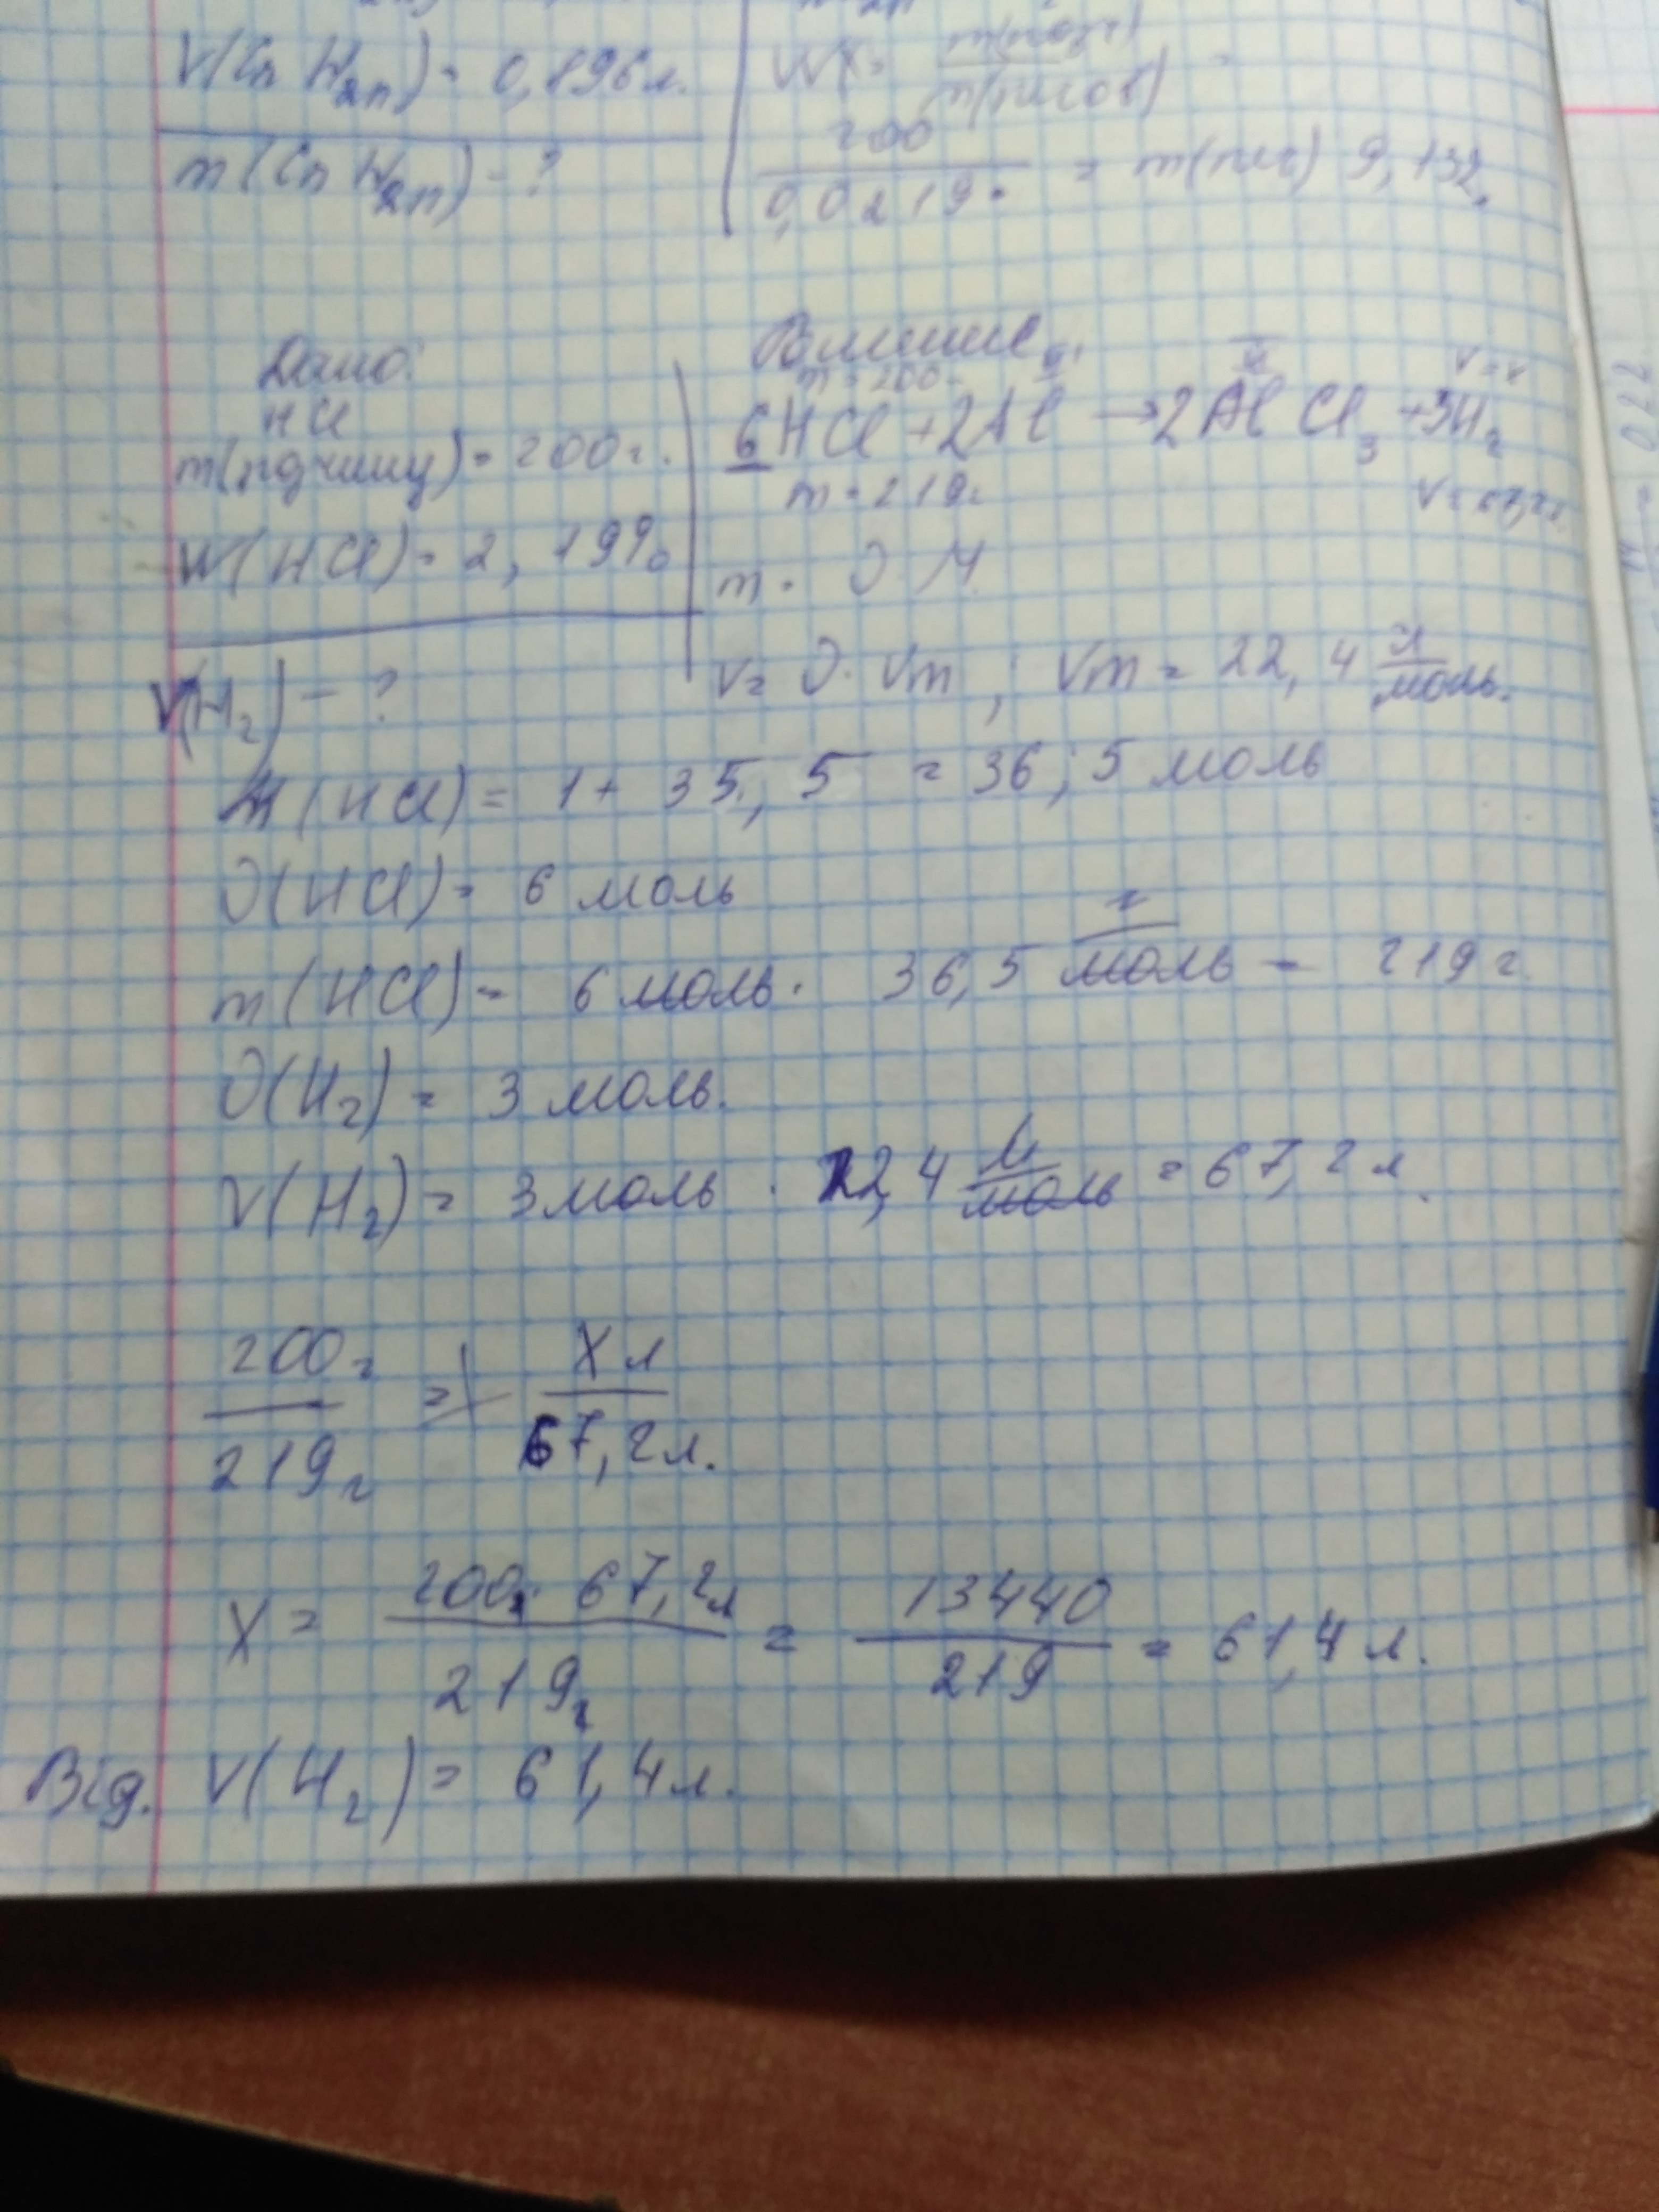 V(CnH2n) = 0,896 л.
m(CnH2n) - ?
200
0,0219 = m(
) 9,132
Дано:
HCl
m(розчину) = 200г.
W(HCl) = 2,19%
V(H2) - ?
m = 200
6HCl + 2Al → 2AlCl3 + 3H2
m = 219г
V = 67,2л
m = ν · M
V = ν · Vm ; Vm = 22,4 л/моль.
M(HCl) = 1 + 35,5 = 36,5 моль
ν(HCl) = 6 моль
m(HCl) = 6 моль · 36,5 г/моль = 219 г
ν(H2) = 3 моль.
V(H2) = 3 моль · 22,4 л/моль = 67,2 л.
200г / 219г = X л / 67,2 л.
X = 200г · 67,2л / 219г = 13440 / 219 = 61,4 л.
Від. V(H2) = 61,4 л.